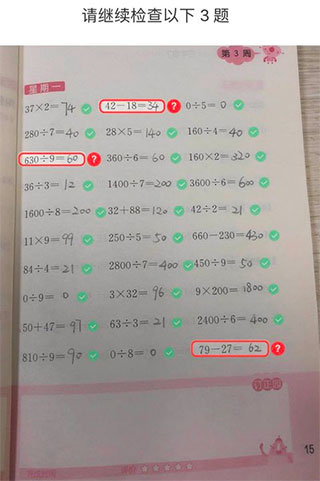 请继续检查以下 3 题
第 3 周
星期一
37×2=74 42−18=34 ? 0÷5=0
280÷7=40 28×5=140 160÷4=40
630÷9=60 ? 360÷6=60 160×2=320
36÷3=12 1400÷7=200 3600÷6=600
1600÷8=200 32+88=120 42÷2=21
11×9=99 250÷5=50 660−230=430
84÷4=21 2800÷7=400 450÷9=50
0÷9=0 3×32=96 9×200=1800
50+47=97 63÷3=21 2400÷6=400
810÷9=90 0÷8=0 79−27=62 ?
订正园
15